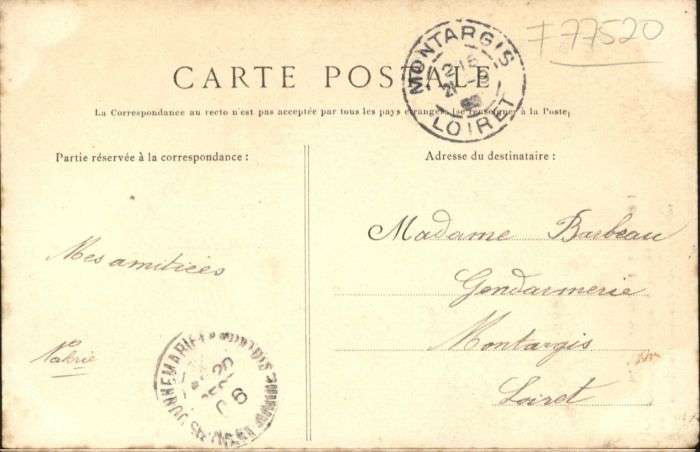 F 77520
MONTARGIS
LOIRET
CARTE POSTALE
La Correspondance au recto n'est pas acceptée par tous les pays étrangers (se renseigner à la Poste)
Partie réservée à la correspondance :
Adresse du destinataire :
Mes amitiées
Madame Barbeau
Gendarmerie
Montargis
Loiret